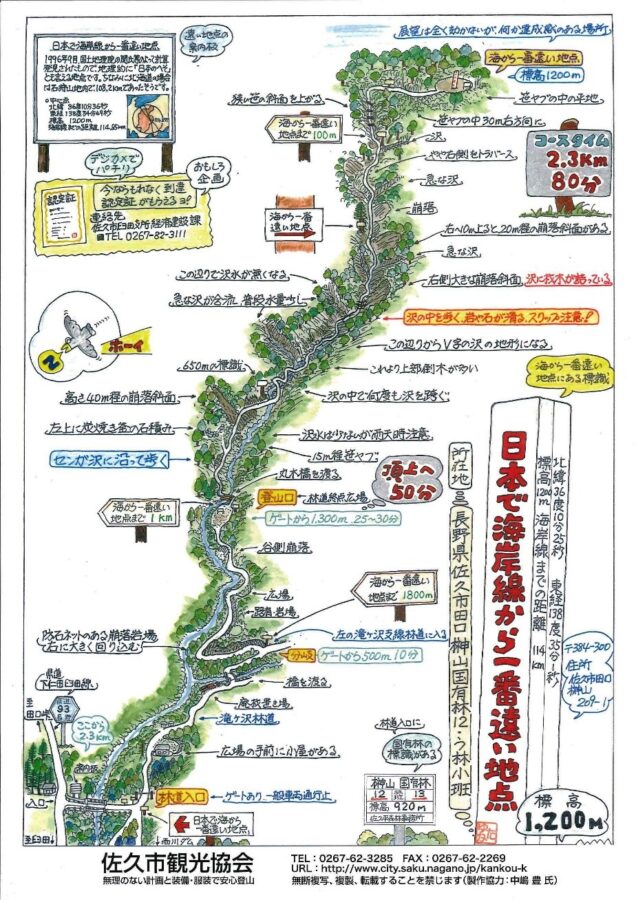 日本で海岸線から一番遠い地点
遠い地点の
案内板
展望は全く効かないが、何か達成感のある場所
海から一番遠い地点
標高1200m
笹ヤブの中の平地
狭い笹の斜面を上がる
笹ヤブの中30m右方向に
海から一番遠い
地点まで100m
沢
やや右側をトラバース
コースタイム
2.3Km
80分
急な沢
崩落
デジカメで
パチリ
おもしろ
企画
認定証
今ならもれなく到達
認定証がもらえるヨ!
連絡先
佐久市臼田支所経済建設課
TEL 0267-82-3111
海から一番
遠い地点
右へ10m上ると20m程の崩落斜面がある
急な沢
この辺りで沢水が無くなる
右側大きな崩落斜面、沢に枕木が詰っている
急な沢が合流、普段水量少し
沢の中を歩く、岩や石が滑る、スリップ注意!
この辺りからV字の沢の地形になる
N
ホーイ
650mの標識
これより上部倒木が多い
海から一番遠い
地点にある標識
高さ40m程の崩落斜面
沢の中で何度も沢を跨ぐ
左上に炭焼き釜の石積み
沢水は少ないが雨天時注意
センが沢に沿って歩く
15m程笹ヤブ
丸木橋を渡る
頂上へ
50分
登山口
林道終点広場
海から一番遠い
地点まで1km
ゲートから1,300m 25~30分
谷側崩落
広場
海から一番遠い
地点まで1800m
路肩岩場
防石ネットのある崩落岩場
右に大きく回り込む
左の滝ヶ沢支線林道に入る
分岐
ゲートから500m 10分
橋を渡る
県道
下仁田臼田線
県道
93
至
田口峠
ここから
2.3km
滝ヶ沢林道
広場の手前に小屋がある
案内板
入口
林道入口
ゲートあり、一般車両通行止
至臼田
日本で海から
一番遠い地点
雨川ダム
林道入口に
国有林の
標識がある
榊山 国有林
12 13
標高 920m
北緯36度10分25秒 東経138度35分1秒
標高1200m 海岸線までの距離 114km
日本で海岸線から一番遠い地点
所在地 長野県佐久市田口 榊山国有林12・う林小班
〒384-300
住所
佐久市田口
榊山
209-1
標高
1,200M
佐久市観光協会
無理のない計画と装備・服装で安心登山
TEL:0267-62-3285 FAX:0267-62-2269
URL:http://www.city.saku.nagano.jp/kankou-k
無断複写、複製、転載することを禁じます(製作協力:中嶋 豊 氏)